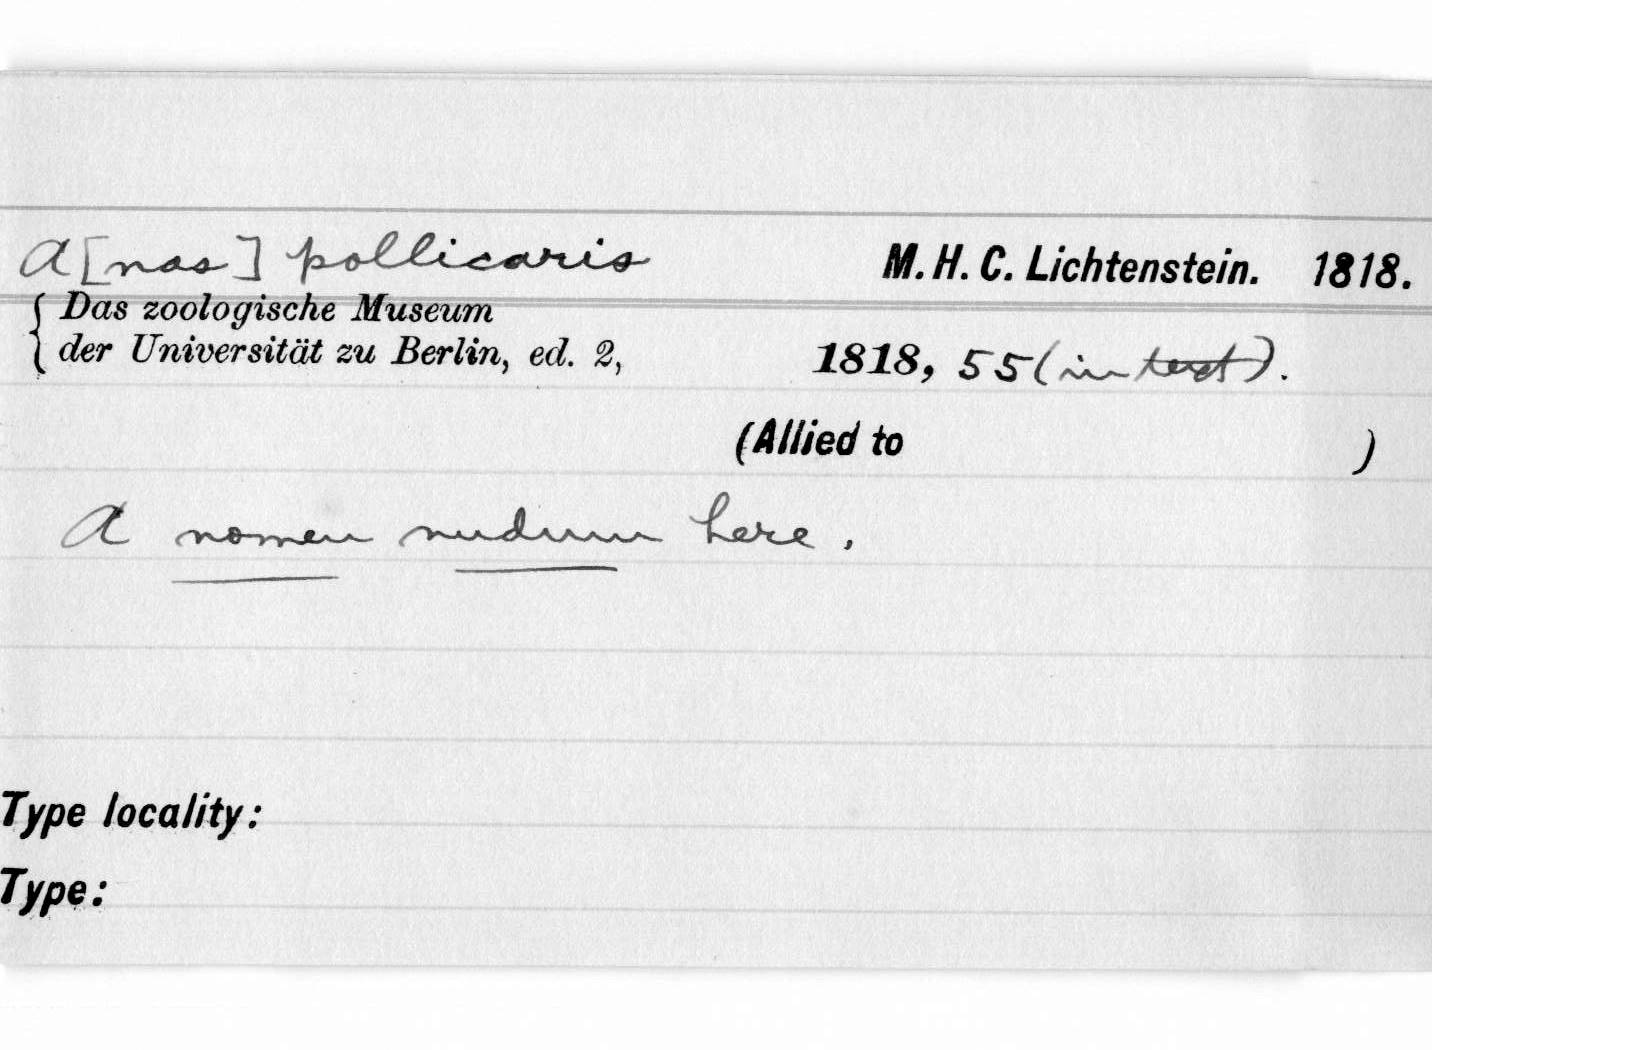 A[nas] pollicaris M. H. C. Lichtenstein. 1818.
Das zoologische Museum
der Universität zu Berlin, ed. 2, 1818, 55 (in text).
(Allied to )
A nomen nudum here.
Type locality:
Type: